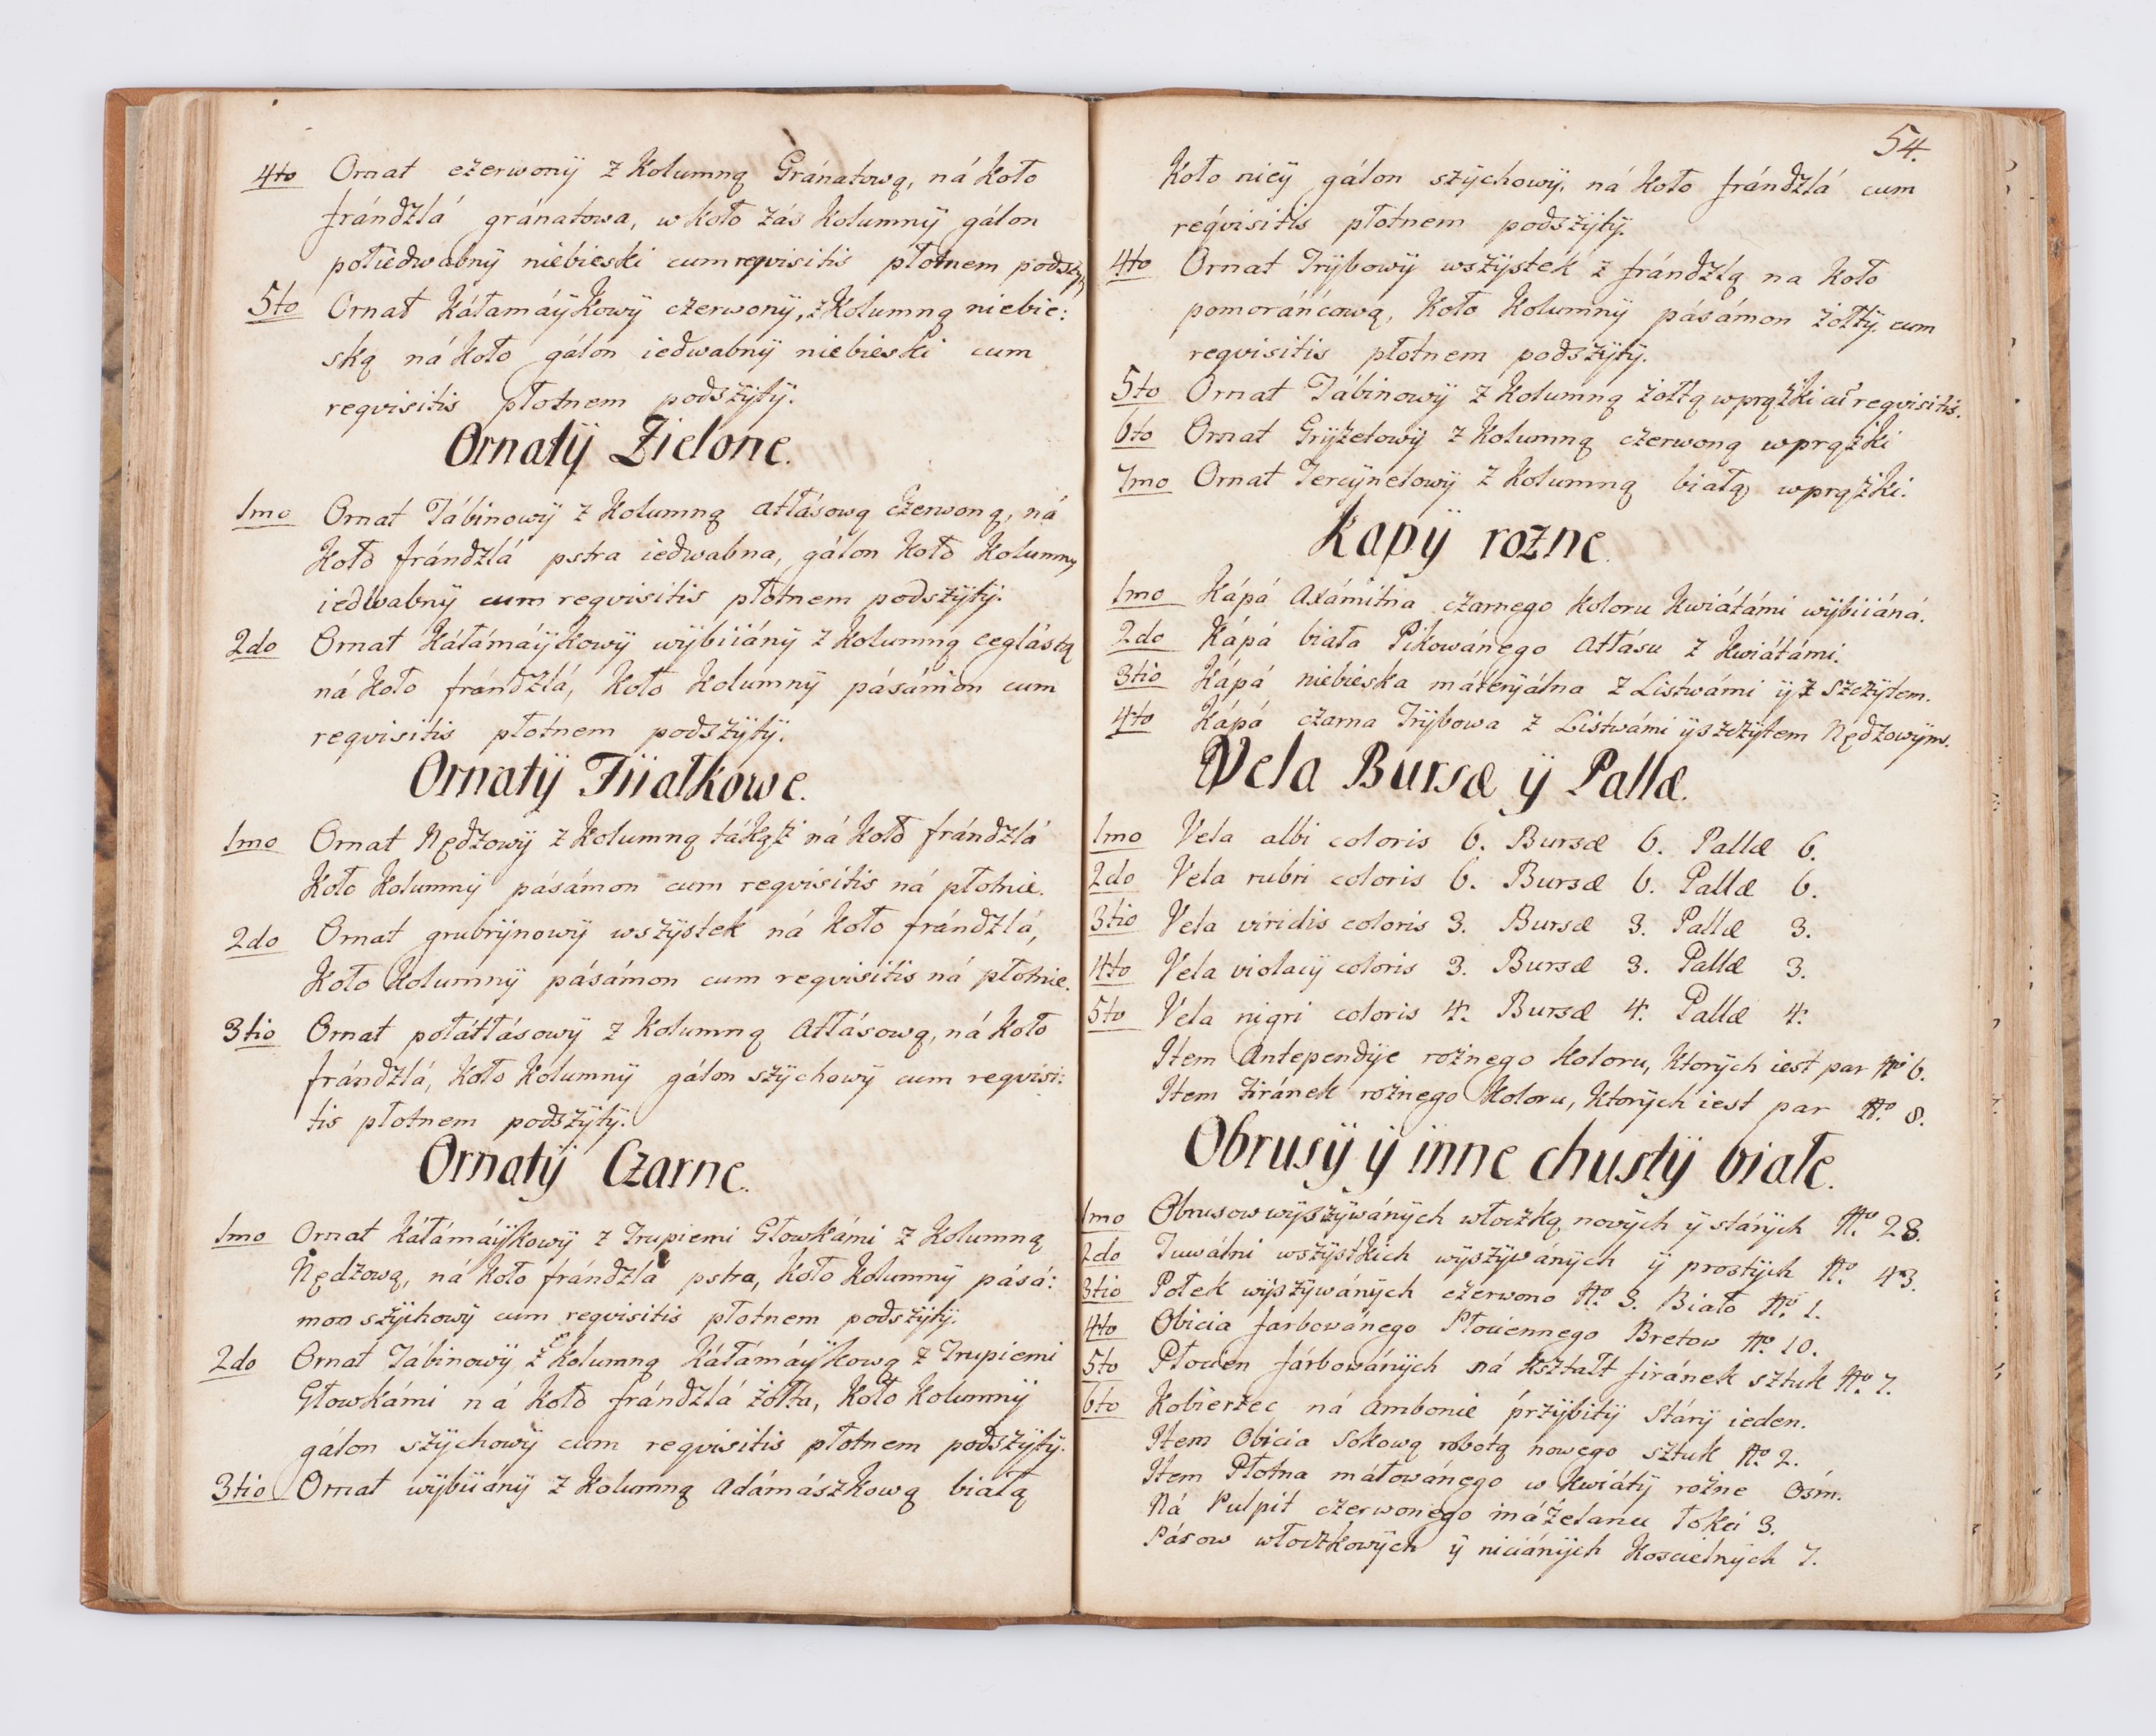 4to Ornat czerwonÿ z Kolumną Gránatową, ná Koło
frándzlá gránatowa, w koło zás Kolumnÿ gálon
połiedwabnÿ niebieski cum reqvisitis płotnem podszÿ
5to Ornat Káłamáÿkowÿ czerwonÿ, z Kolumną niebie:
ską ná Koło gálon iedwabnÿ niebieski cum
reqvisitis płotnem podszÿtÿ.
Ornatÿ Zielone.
1mo Ornat Tábinowÿ z Kolumną atłásową czerwoną, ná
Koło frándzlá pstra iedwabna, gálon Koło Kolumny
iedwabnÿ cum reqvisitis płotnem podszÿtÿ.
2do Ornat Káłamáÿkowÿ wÿbiiánÿ z Kolumną ceglástą
ná Koło frándzlá, Koło Kolumnÿ pásámon cum
reqvisitis płotnem podszÿtÿ.
Ornatÿ Fiiałkowe.
1mo Ornat Nędzowÿ z Kolumną tákąż ná Koło frándzlá
Koło Kolumnÿ pásámon cum reqvisitis ná płotnie.
2do Ornat grubrÿnowÿ wszÿstek ná Koło frándzlá,
Koło Kolumnÿ pásámon cum reqvisitis ná płotnie.
3tio Ornat połátłásowÿ z Kolumną Atłásową, ná Koło
frándzlá, Koło Kolumnÿ gálon szÿchowÿ cum reqvisi:
tis płotnem podszÿtÿ.
Ornatÿ Czarne.
1mo Ornat Káłámáÿkowÿ z Trupiemi Głowkámi z Kolumną
Nędzową, ná Koło frándzlá pstra, Koło Kolumnÿ pásá:
mon szÿchowÿ cum reqvisitis płotnem podszÿtÿ.
2do Ornat Tábinowÿ z Kolumną Káłámáÿkową z Trupiemi
Głowkámi ná Koło frándzlá żołta, Koło Kolumnÿ
gálon szÿchowÿ cum reqvisitis płotnem podszÿtÿ.
3tio Ornat wÿbiianÿ z Kolumną Adámászkową białą
54.
Koło nieÿ gálon szÿchowÿ, ná Koło frándzlá cum
reqvisitis płotnem podszÿtÿ.
4to Ornat Trÿbowÿ wszÿstek z frándzlą na Koło
pomoráńcową, Koło Kolumnÿ pásámon żołtÿ cum
reqvisitis płotnem podszÿtÿ.
5to Ornat Tábinowÿ z Kolumną żołtą w prążki reqvisitis.
6to Ornat Grÿzetowÿ z Kolumną czerwoną w prążki
7mo Ornat Tercÿnelowÿ z Kolumną białą w prążki.
Kapÿ rożne.
1mo Kápá Axámitna czarnego Koloru Kwiátámi wÿbiiáná.
2do Kápá biała Pikowánego Atłásu z Kwiátámi.
3tio Kápá niebieska máterÿálna z Listwámi ÿ z szczÿtem.
4to Kápá czarna Trÿbowa z Listwámi ÿ szczÿtem Nędzowÿm.
Vela Bursæ ÿ Pallæ.
1mo Vela albi coloris 6. Bursæ 6. Pallæ 6.
2do Vela rubri coloris 6. Bursæ 6. Pallæ 6.
3tio Vela viridis coloris 3. Bursæ 3. Pallæ 3.
4to Vela violacÿ coloris 3. Bursæ 3. Pallæ 3.
5to Vela nigri coloris 4. Bursæ 4. Pallæ 4.
Item Antependÿe rożnego Koloru, Ktorÿch iest par No 6.
Item Firánek rożnego Koloru, Ktorÿch iest par No. 8.
Obrusÿ ÿ inne chustÿ białe.
1mo Obrusow wÿszÿwánÿch włoczką nowÿch ÿ stárÿch No. 28.
2do Tuwálni wszÿstkich wÿszÿwánÿch ÿ prostÿch No. 43.
3tio Połek wÿszÿwánÿch czerwono No. 3. Biało No. 1.
4to Obicia farbowánego Płociennego Bretow No. 10.
5to Płocien fárbowánÿch ná kształt firánek sztuk No. 7.
6to Kobierzec ná Ambonie przÿbitÿ stárÿ ieden.
Item Obicia sokową robotą nowego sztuk No. 2.
Item Płotna máłowánego w Kwiátÿ rożne Ośm.
Ná Pulpit czerwonego máżelanu łokci 3.
Pásow włoczkowÿch ÿ niciánÿch Koscielnÿch 7.